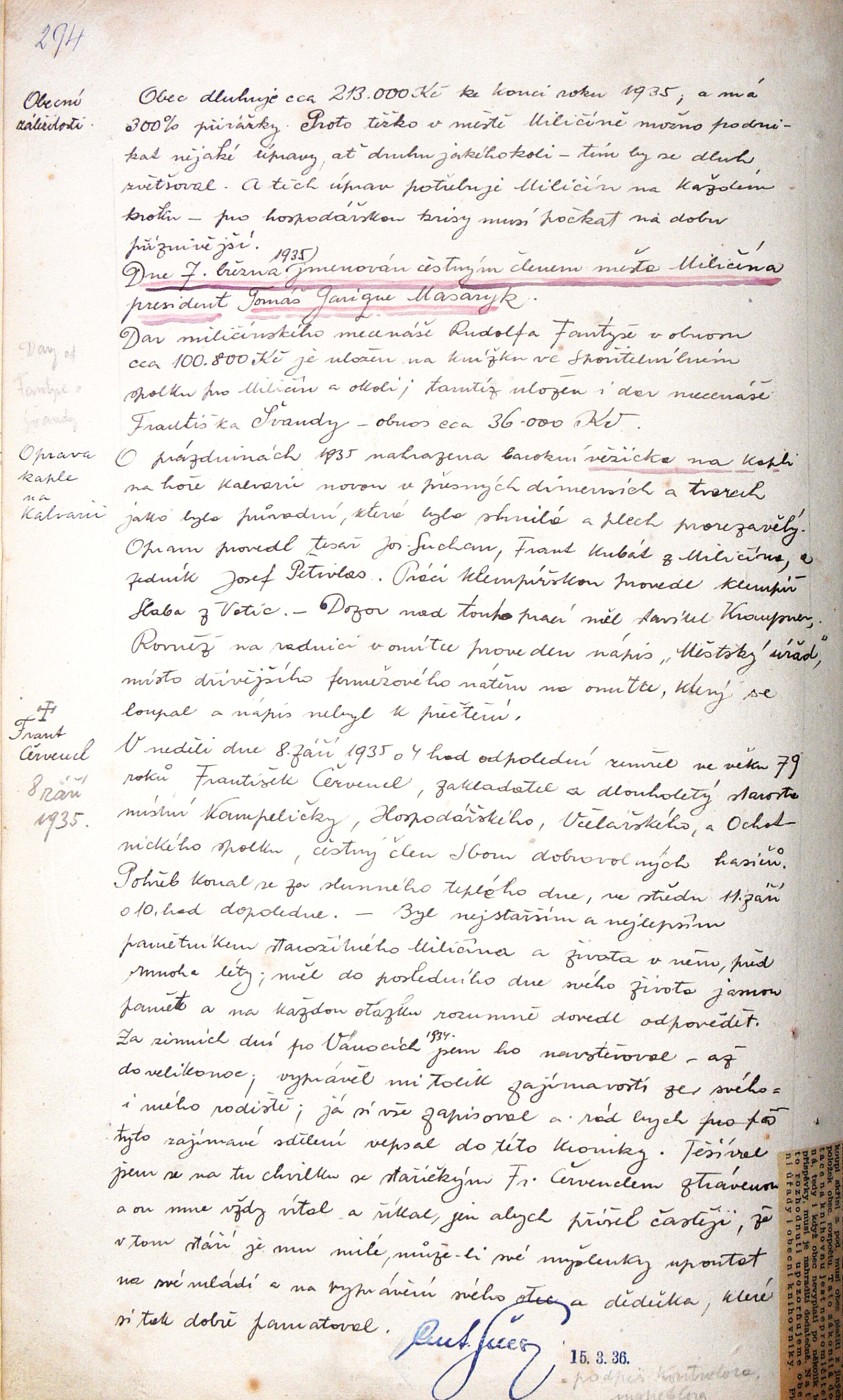 294
Obecní
záležitosti.
Obec dluhuje cca 213.000 Kč ke konci roku 1935; a má
300% přirážky. Proto těžko v městě Miličíně možno podni-
kat nějaké úpravy, ať druhu jakéhokoli – tím by se dluh
zvětšoval. A těch úprav potřebuje Miličín na každém
kroku – pro hospodářskou krisy musí počkat na dobu
příznivější.
Dne 7. března 1935 jmenován čestným členem města Miličína
president Tomáš Garigue Masaryk.
Dary od
Fantyse a
Švandy
Dar miličínského mecenáše Rudolfa Fantyse v obnosu
cca 100.800 Kč je uložen na knížku ve Spořitelním
spolku pro Miličín a okolí; tamtéž uložen i dar mecenáše
Františka Švandy – obnos cca 36.000 Kč.
Oprava
kaple
na
Kalvarii
O prázdninách 1935 nahrazena barokní věžička na kapli
na hoře Kalvarii novou v přesných dimensích a tvarech
jako byla původní, která byla shnilá a plech prorezavělý.
Opravu provedl tesař Jos. Suchan, Frant Kubát z Miličína, a
zedník Josef Petrvlas. Práci klempířskou provedl klempíř
Slaba z Votic. – Dozor nad touto prací měl stavitel
Rovněž na radnici v omítce proveden nápis „Městský úřad",
místo dřívějšího fermežového nátěru na omítce, který se
loupal a nápis nebyl k přečtení.
Frant
Červencl
8 září
1935.
V neděli dne 8. září 1935 o 4 hod odpolední zemřel ve věku 79
roků František Červencl, zakladatel a dlouholetý starosta
místní Kampeličky, Hospodářského, Včelařského, a Ochot
nického spolku, čestný člen Sboru dobrovolných hasičů.
Pohřeb konal se za slunného teplého dne, ve středu 11. září
o 10. hod dopoledne. – Byl nejstarším a nejlepším
pamětníkem starožitného Miličína a života v něm, před
mnoha léty; měl do posledního dne svého života jasnou
paměť a na každou otázku rozumně dovedl odpovědět.
Za zimních dní po Vánocích 1934 jsem ho navštěvoval – až
do velikonoc; vyprávěl mi tolik zajímavostí ze svého =
i mého rodiště; já si vše zapisoval a rád bych
tyto zajímavé sdělení vepsal do této kroniky. Těšíval
jsem se na tu chvilku se stařičkým Fr. Červenclem ztrávenou
a on mne vždy vítal a říkal, jen abych přišel častěji, že
v tom stáří je mu milé, může-li své myšlenky upoutat
na své mládí a na vyprávění svého otce a dědečka, které
si tak dobře pamatoval.
15. 3. 36.
podpis kontrolora